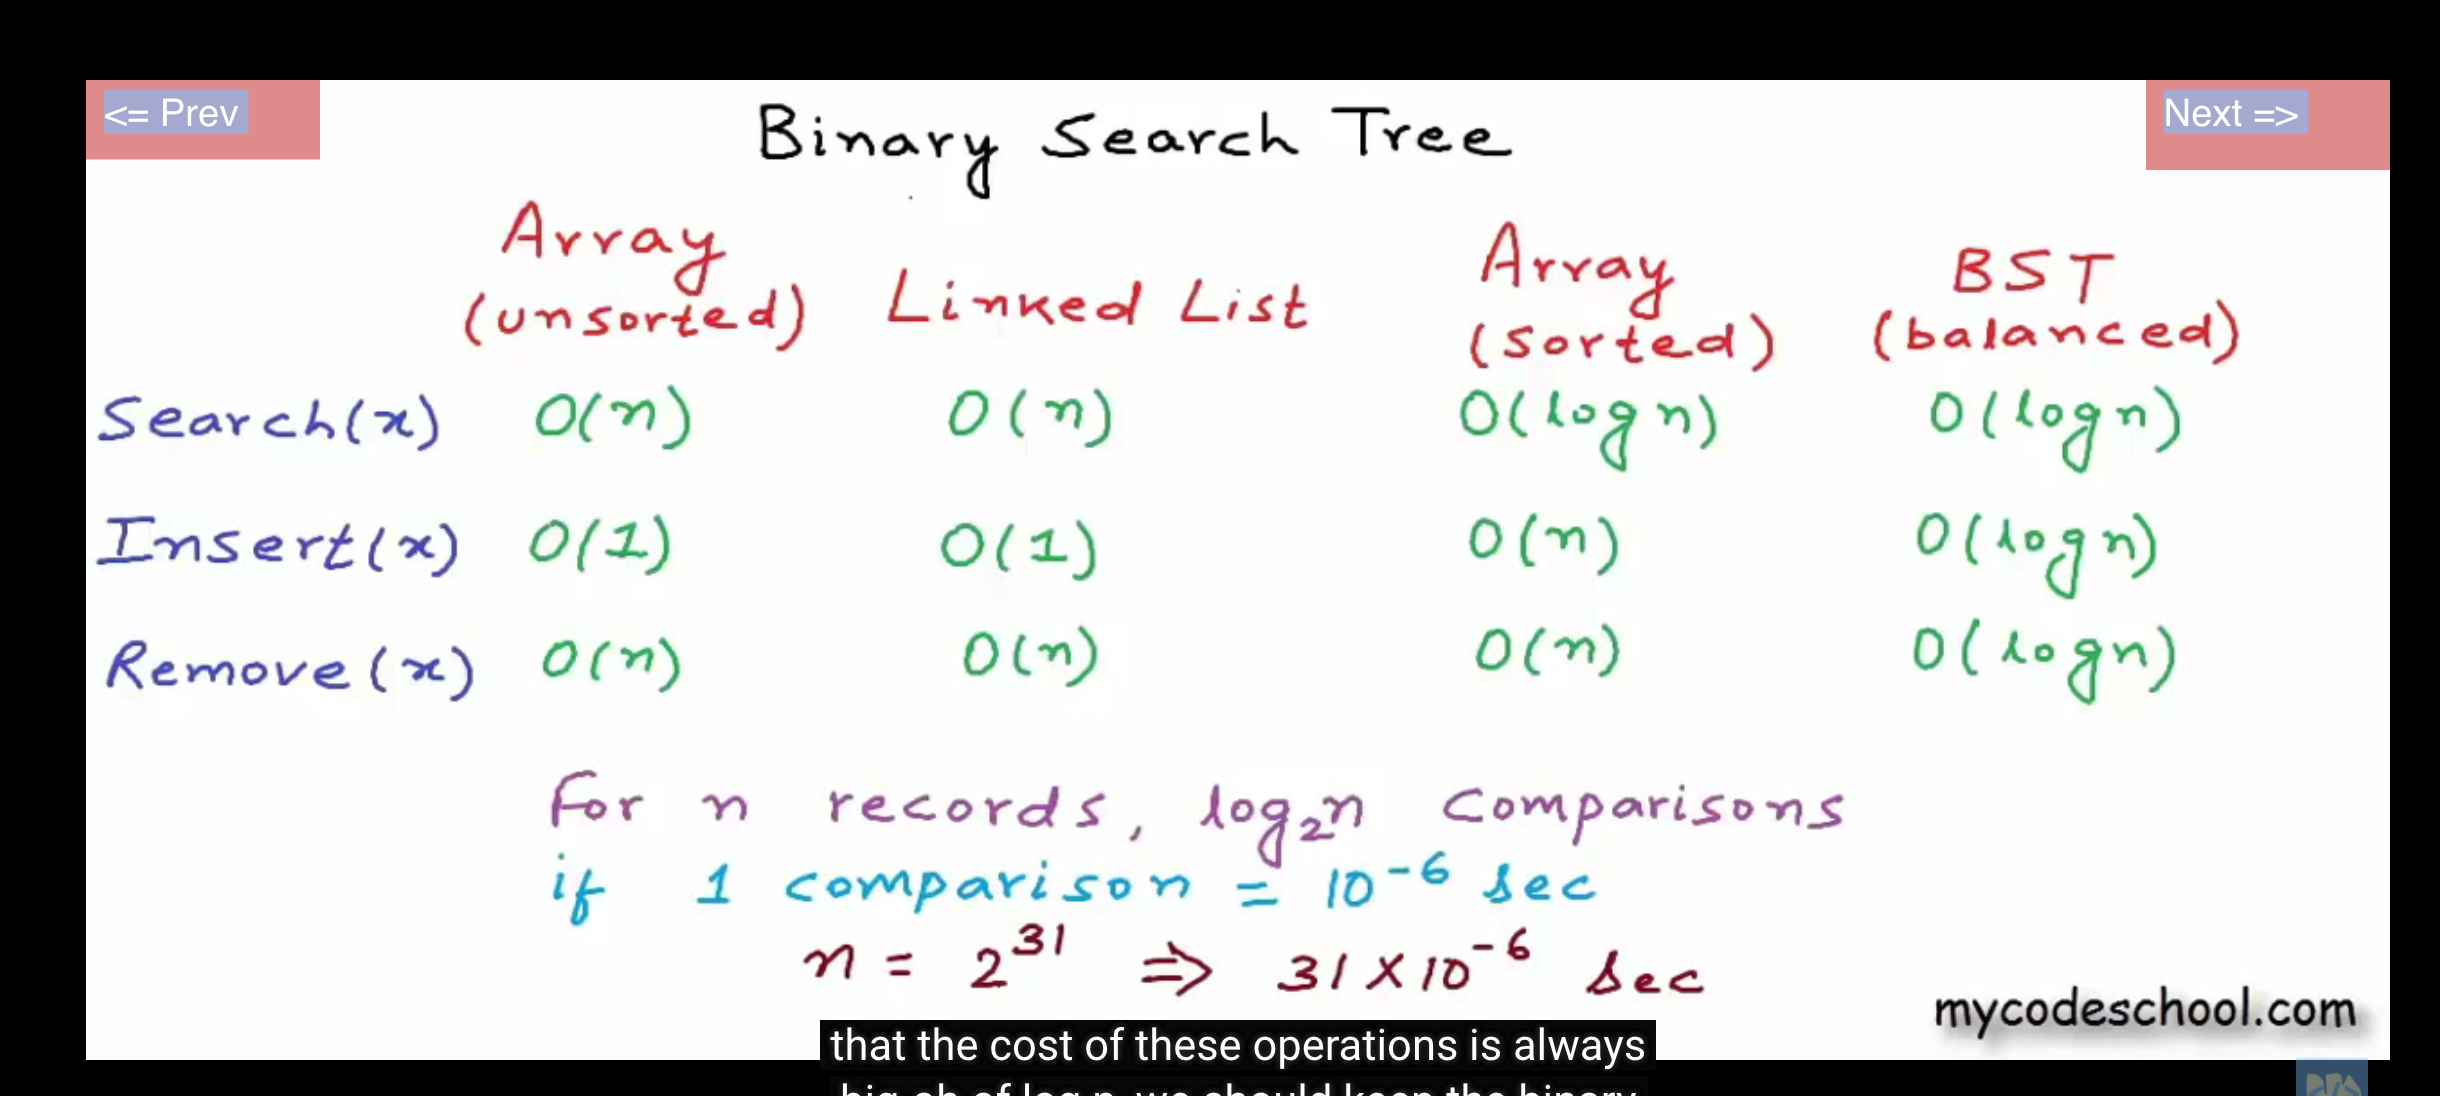 <= Prev
Next =>
Binary Search Tree
Array (unsorted) Linked List Array (sorted) BST (balanced)
Search(x) O(n) O(n) O(log n) O(log n)
Insert(x) O(1) O(1) O(n) O(log n)
Remove(x) O(n) O(n) O(n) O(log n)
For n records, log₂n comparisons
if 1 comparison = 10⁻⁶ sec
n = 2³¹ ⇒ 31 × 10⁻⁶ sec
mycodeschool.com
that the cost of these operations is always
big oh of log n, we should keep the binary